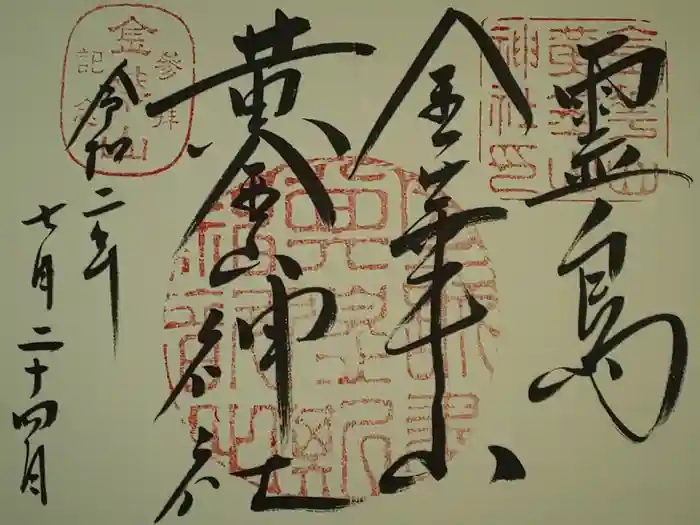 霊島
金華山
黄金山神社
令和二年
七月二十四日
参拝
金華山
記念